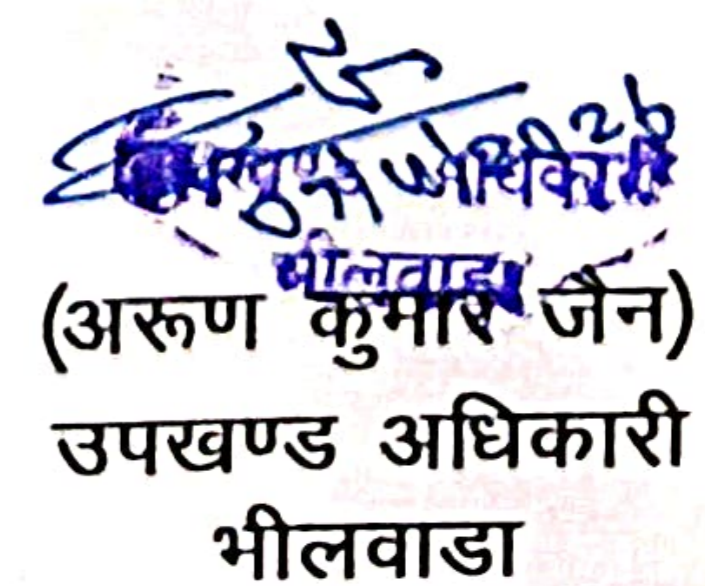 उपखण्ड अधिकारी
भीलवाडा
(अरूण कुमार जैन)
उपखण्ड अधिकारी
भीलवाडा